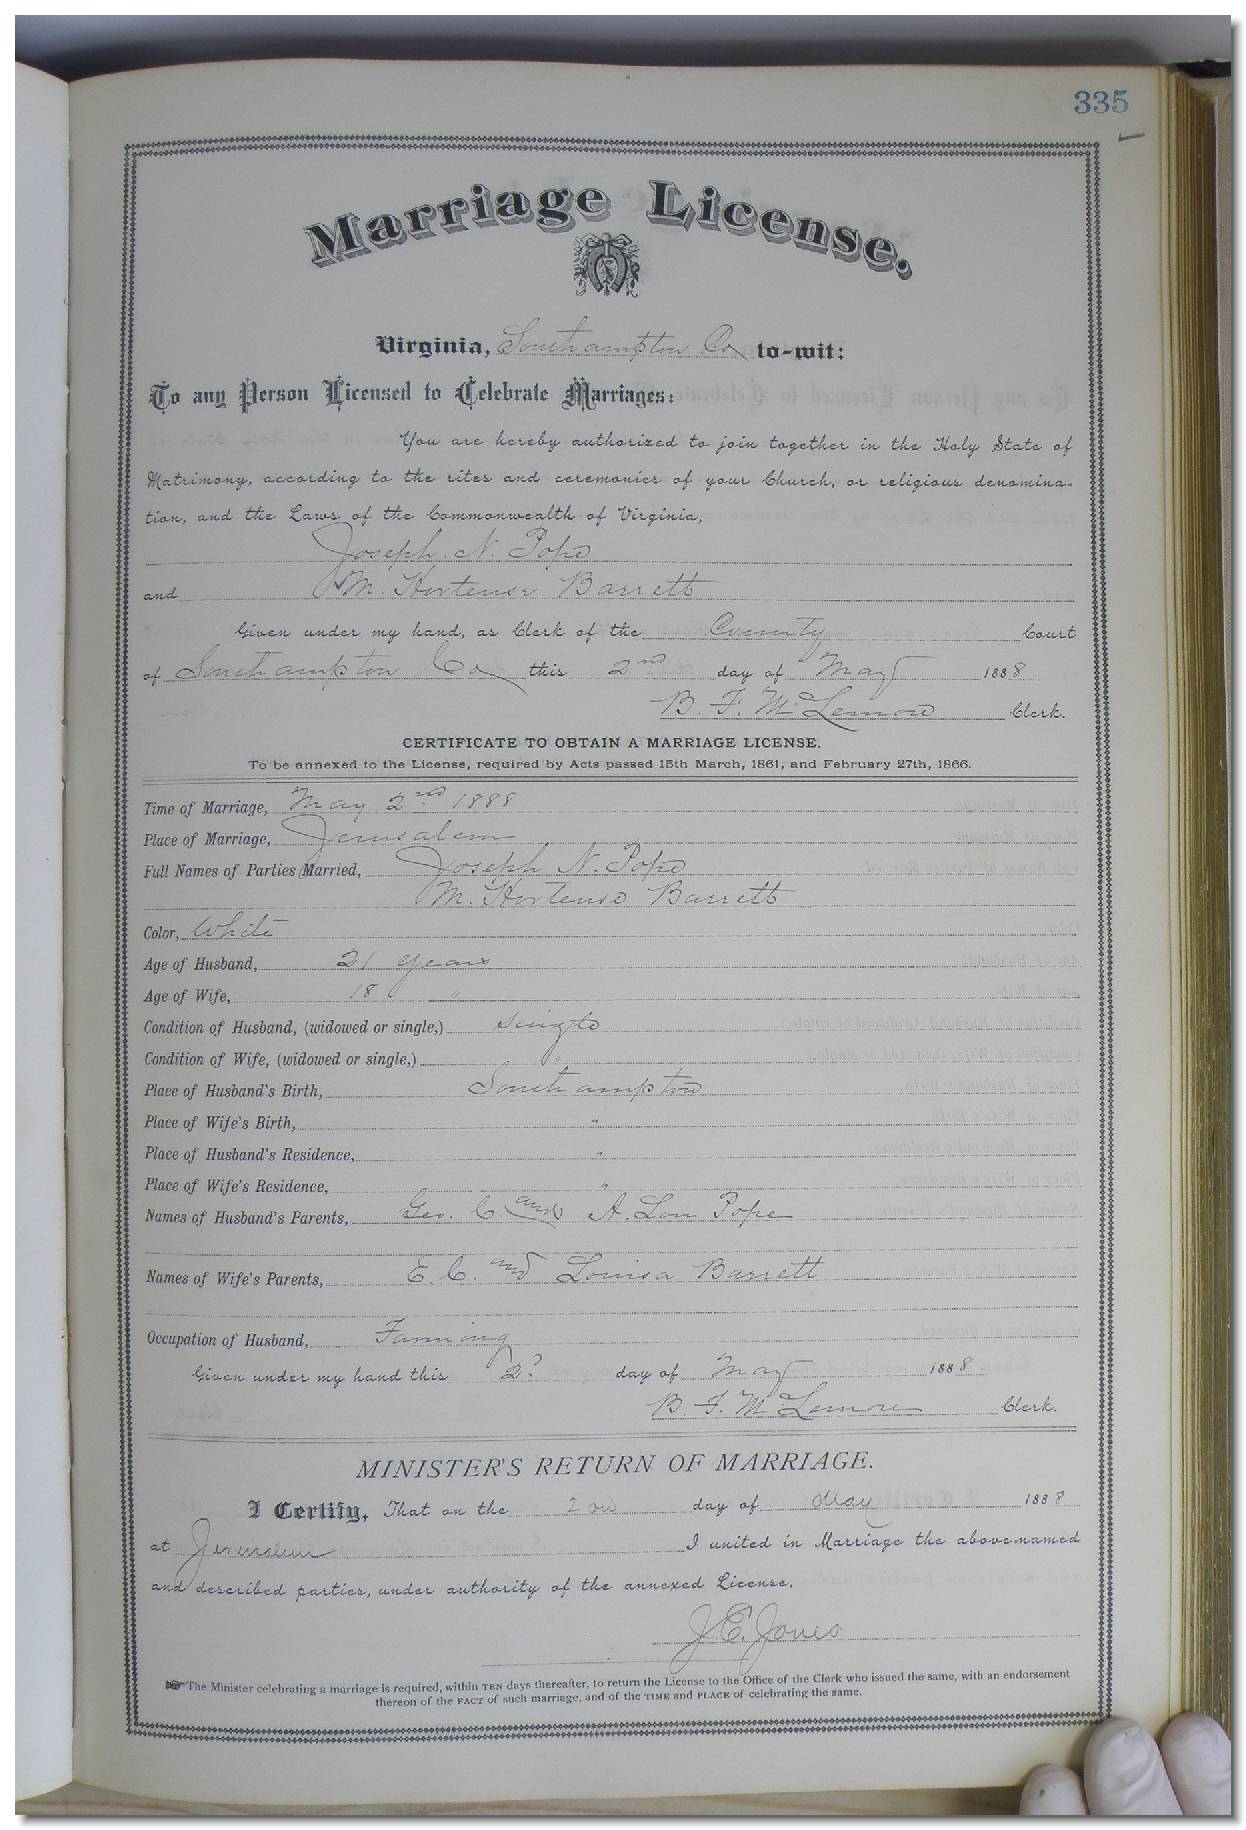 335
Marriage License.
Virginia, Southampton Co to-wit:
To any Person Licensed to Celebrate Marriages:
You are hereby authorized to join together in the Holy State of
Matrimony, according to the rites and ceremonies of your Church, or religious denomina-
tion, and the Laws of the Commonwealth of Virginia,
Joseph. N. Pope
and M. Hortense Barrett
Given under my hand, as Clerk of the County Court
of Southampton Co this 2nd day of May 1888
B. F. McLemore Clerk.
CERTIFICATE TO OBTAIN A MARRIAGE LICENSE.
To be annexed to the License, required by Acts passed 15th March, 1861, and February 27th, 1866.
Time of Marriage, May 2nd 1888
Place of Marriage, Jerusalem
Full Names of Parties Married, Joseph N. Pope
M. Hortense Barrett
Color, White
Age of Husband, 21 years
Age of Wife, 18 "
Condition of Husband, (widowed or single,) Single
Condition of Wife, (widowed or single,) "
Place of Husband's Birth, Southampton
Place of Wife's Birth, "
Place of Husband's Residence, "
Place of Wife's Residence, "
Names of Husband's Parents, Geo. C. and A. Lou Pope
Names of Wife's Parents, E. C. and Louisa Barrett
Occupation of Husband, Farming
Given under my hand this 2d day of May 1888
B. F. McLemore Clerk.
MINISTER'S RETURN OF MARRIAGE.
I Certify, That on the 2nd day of May 1888
at Jerusalem I united in Marriage the above-named
and described parties, under authority of the annexed License.
J. E. Jones
☞ The Minister celebrating a marriage is required, within TEN days thereafter, to return the License to the Office of the Clerk who issued the same, with an endorsement
thereon of the FACT of such marriage, and of the TIME and PLACE of celebrating the same.